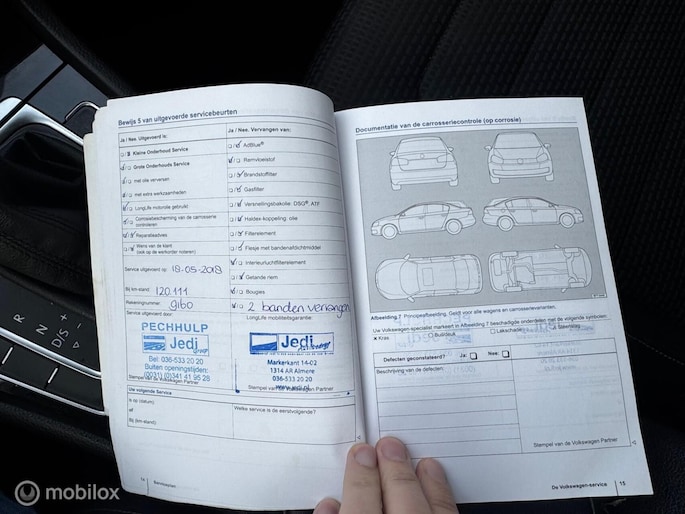 Bewijs 5 van uitgevoerde servicebeurten
Ja / Nee. Uitgevoerd is:
Kleine Onderhoud Service
Grote Onderhouds Service
met olie verversen
met extra werkzaamheden
LongLife motorolie gebruikt
Corrosiebescherming van de carrosserie
controleren
Reparatieadvies
Wens van de klant
(ook op de werkorder noteren)
Service uitgevoerd op: 18-05-2018
Bij km-stand: 120.111
Rekeningnummer: 9160
Service uitgevoerd door:
PECHHULP
Jedj
Bel: 036-533 20 20
Buiten openingstijden:
(0031) (0)341 41 95 28
Stempel van de Volkswagen Partner
Uw volgende Service
is op (datum)
of
Bij (km-stand):
Ja / Nee. Vervangen van:
AdBlue®
Remvloeistof
Brandstoffilter
Gasfilter
Versnellingsbakolie: DSG®, ATF
Haldex-koppeling, olie
Filterelement
Flesje met bandenafdichtmiddel
Interieurluchtfilterelement
Getande riem
Bougies
2 banden vervangen
LongLife mobiliteitsgarantie:
Jedj
Markerkant 14-02
1314 AR Almere
036-533 20 20
Stempel van de Volkswagen Partner
Welke service is de eerstvolgende?
14
Serviceplan
Documentatie van de carrosseriecontrole (op corrosie)
Afbeelding 7 Principeafbeelding. Geldt voor alle wagens en carrosserievarianten.
Uw Volkswagen-specialist markeert in Afbeelding 7 beschadigde onderdelen met de volgende symbolen:
× Kras
Buil/deuk
Lakschade
Steenslag
Defecten geconstateerd?
Ja:
Nee:
Beschrijving van de defecten:
Stempel van de Volkswagen Partner
De Volkswagen-service
15
P
R
N
D/S
+
-
mobilox